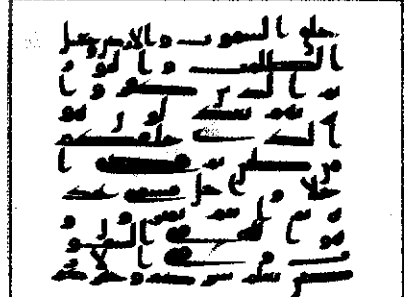 خلق السموت والارض وجعل
الظلمت والنور ث
م الذين كفروا
بربهم يعدلون هو
الذي خلقكم
من طين ثم قضى ا
جلا واجل مسمى عنده
ثم انتم تمترون و
هو الله في السمو
ت وفي الا
رض يعلم سركم وجهركم